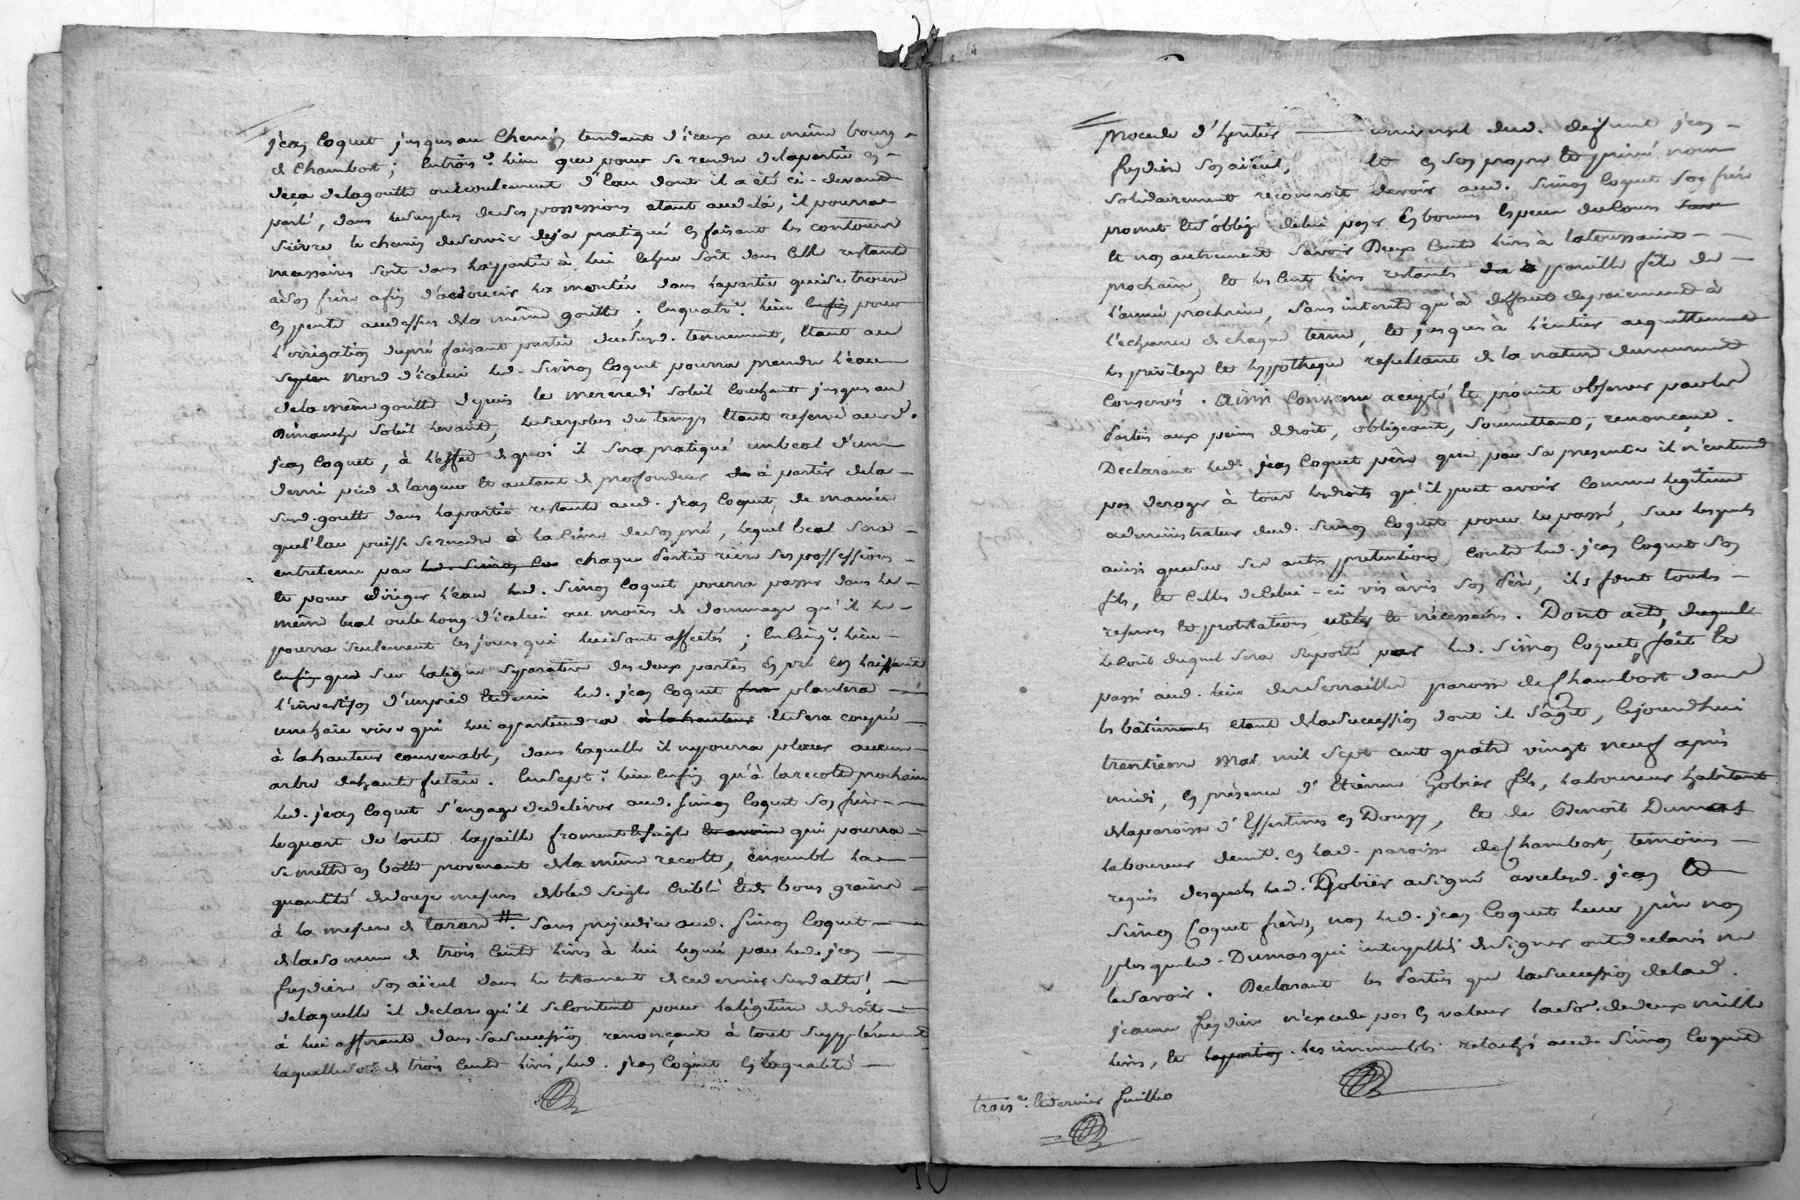 jean Coquet jusques au Chemin tendant d'iceux au même bourg
de Chambost; Entrois.e lieu que pour se rendre delapartie en
deça delagoutte ou écoulement d'Eau dont il a été ci-devant
parlé, dans lesurplus deses possessions étant audelà, il pourra
suivre le chemin deservice deja pratiqué en faisant les contours
necessaires soit dans lapartie à lui soit dans celle restante
àson frère afin d'adoucir la montée dans lapartie quise trouve
en pente audessus dela même goutte; Enquatr.e lieu pour
l'irrigation dupré faisant partie dudit tennement, Etant au
nord d'icelui led. Simon Coquet pourra prendre l'eau
dela même goutte depuis le mercredi soleil Couchant jusques au
Dimanche soleil levant, lesurplus du temps étant réservé aud.
jean Coquet, à l'effet de quoi il sera pratiqué unbeal d'un
demi pied de largeur et autant de profondeur à partir dela
sud. goutte dans lapartie restante aud. jean Coquet, de manière
quel'eau puisse serendre à la Cime deson pré, lequel beal sera
entretenu par led. Simon chaque Partie rière ses possessions
et pour diriger l'eau led. Simon Coquet pourra passer dans le
même beal oule long d'icelui au moins de dommage qu'il le
pourra seulement les jours qui lui sont affectés; Encinq.e lieu
que sur laligne séparative des deux parties de pré en laissant
l'investizon d'unpied etdemi led. jean Coquet plantera
unehaie vive qui lui appartiendra à la hauteur etsera coupée
à la hauteur convenable, dans laquelle il nepourra placer aucun
arbre dehaute futaie. Ensept.e lieu Enfin qu'à larecolte prochaine
led. jean Coquet s'engage dedelivrer aud. Simon Coquet son frère
lequart de toute lapaille froment et seigle et avoine qui pourra
se mettre en botte provenant dela même recolte, ensemble la
quantité dedouze mesures debled seigle criblé et de bons grains
à la mesure de tarare #. Sans prejudice aud. Simon Coquet
delasomme de trois Cents livres à lui legué par led. jean
freydière son aïeul dans le testament de ce dernier susdatté,
delaquelle il declare qu'il seContente pour lalégitime dedroit
à lui afférante dans sasuccession renonçant à tout supplément
laquellesoe de trois Cents livres, led. jean Coquet en laqualité
procede d'heritier universel dud. deffunt jean
freydière son aïeul, et en son propre et privé nom
solidairement reconnoit devoir aud. Simon Coquet son frère
promet et s'oblige delui payer En bonnes Especes de Cours
et non autrement savoir Deux Cents livres à latoussaint
prochain, et les Cent livres restants à pareille fête de
l'année prochaine, sans interêt qu'à deffaut depaiement à
l'echeance de chaque terme, et jusques à l'entier acquittement
les privilege et hypotheque resultant de la nature
Conservés. Ainsi Convenu accepté et promit observer par les
Parties aux peines dedroit, obligeant, soumettant, renonçant.
Declarant led. jean Coquet père que par sa presence il n'entend
pas deroger à tous les droits qu'il peut avoir comme legitime
administrateur dud. Simon Coquet pour le passé, sur lesquels
ainsi quesur ses autres pretentions contre led. jean Coquet son
fils, et Celles deCelui-ci vis àvis son Père, ils font toutes
reserves et protestations utiles et nécessaires. Dont acte, duquel
le Coût duquel sera suporté par led. Simon Coquet, fait et
passé aud. lieu paroisse de Chambost dans
les bâtiments étant delasuccession dont il s'agit, Cejourdhui
trentieme Mai mil sept cent quatre vingt neuf après
midi, en présence d'Etienne Gobier fils, laboureur habitant
delaparoisse d'Essertines en Donzy, et de Benoit Dumas
laboureur demt. en lad. paroisse de Chambost, temoins
requis desquels led. Gobier asigné aveclesd. jean et
Simon Coquet frères, non led. jean Coquet leur père non
plus queled. Dumas qui interpellés designer ontdeclarés ne
lesavoir. Declarant les Parties que lasuccession delad.
jeanne freydière n'excede pas en valeur lasoe. dedeux mille
livres, et laportion les immeubles relachés aud. Simon Coquet
trois.e etdernier feuillet